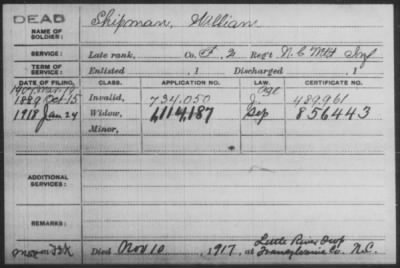 DEAD
NAME OF SOLDIER: Shipman, William
SERVICE: Late rank, Co. F, 2 Reg't N.C. Mtd Inf
TERM OF SERVICE: Enlisted , 1 Discharged , 1
DATE OF FILING. CLASS. APPLICATION NO. LAW. CERTIFICATE NO.
Age
1889 Oct 15 Invalid, 734.050 J. 489.961
1918 Jan 24 Widow, 1114,187 856443
Minor,
ADDITIONAL SERVICES:
REMARKS:
Little River Twp
Died Nov 10 , 1917, at Transylvania Co. N.C.